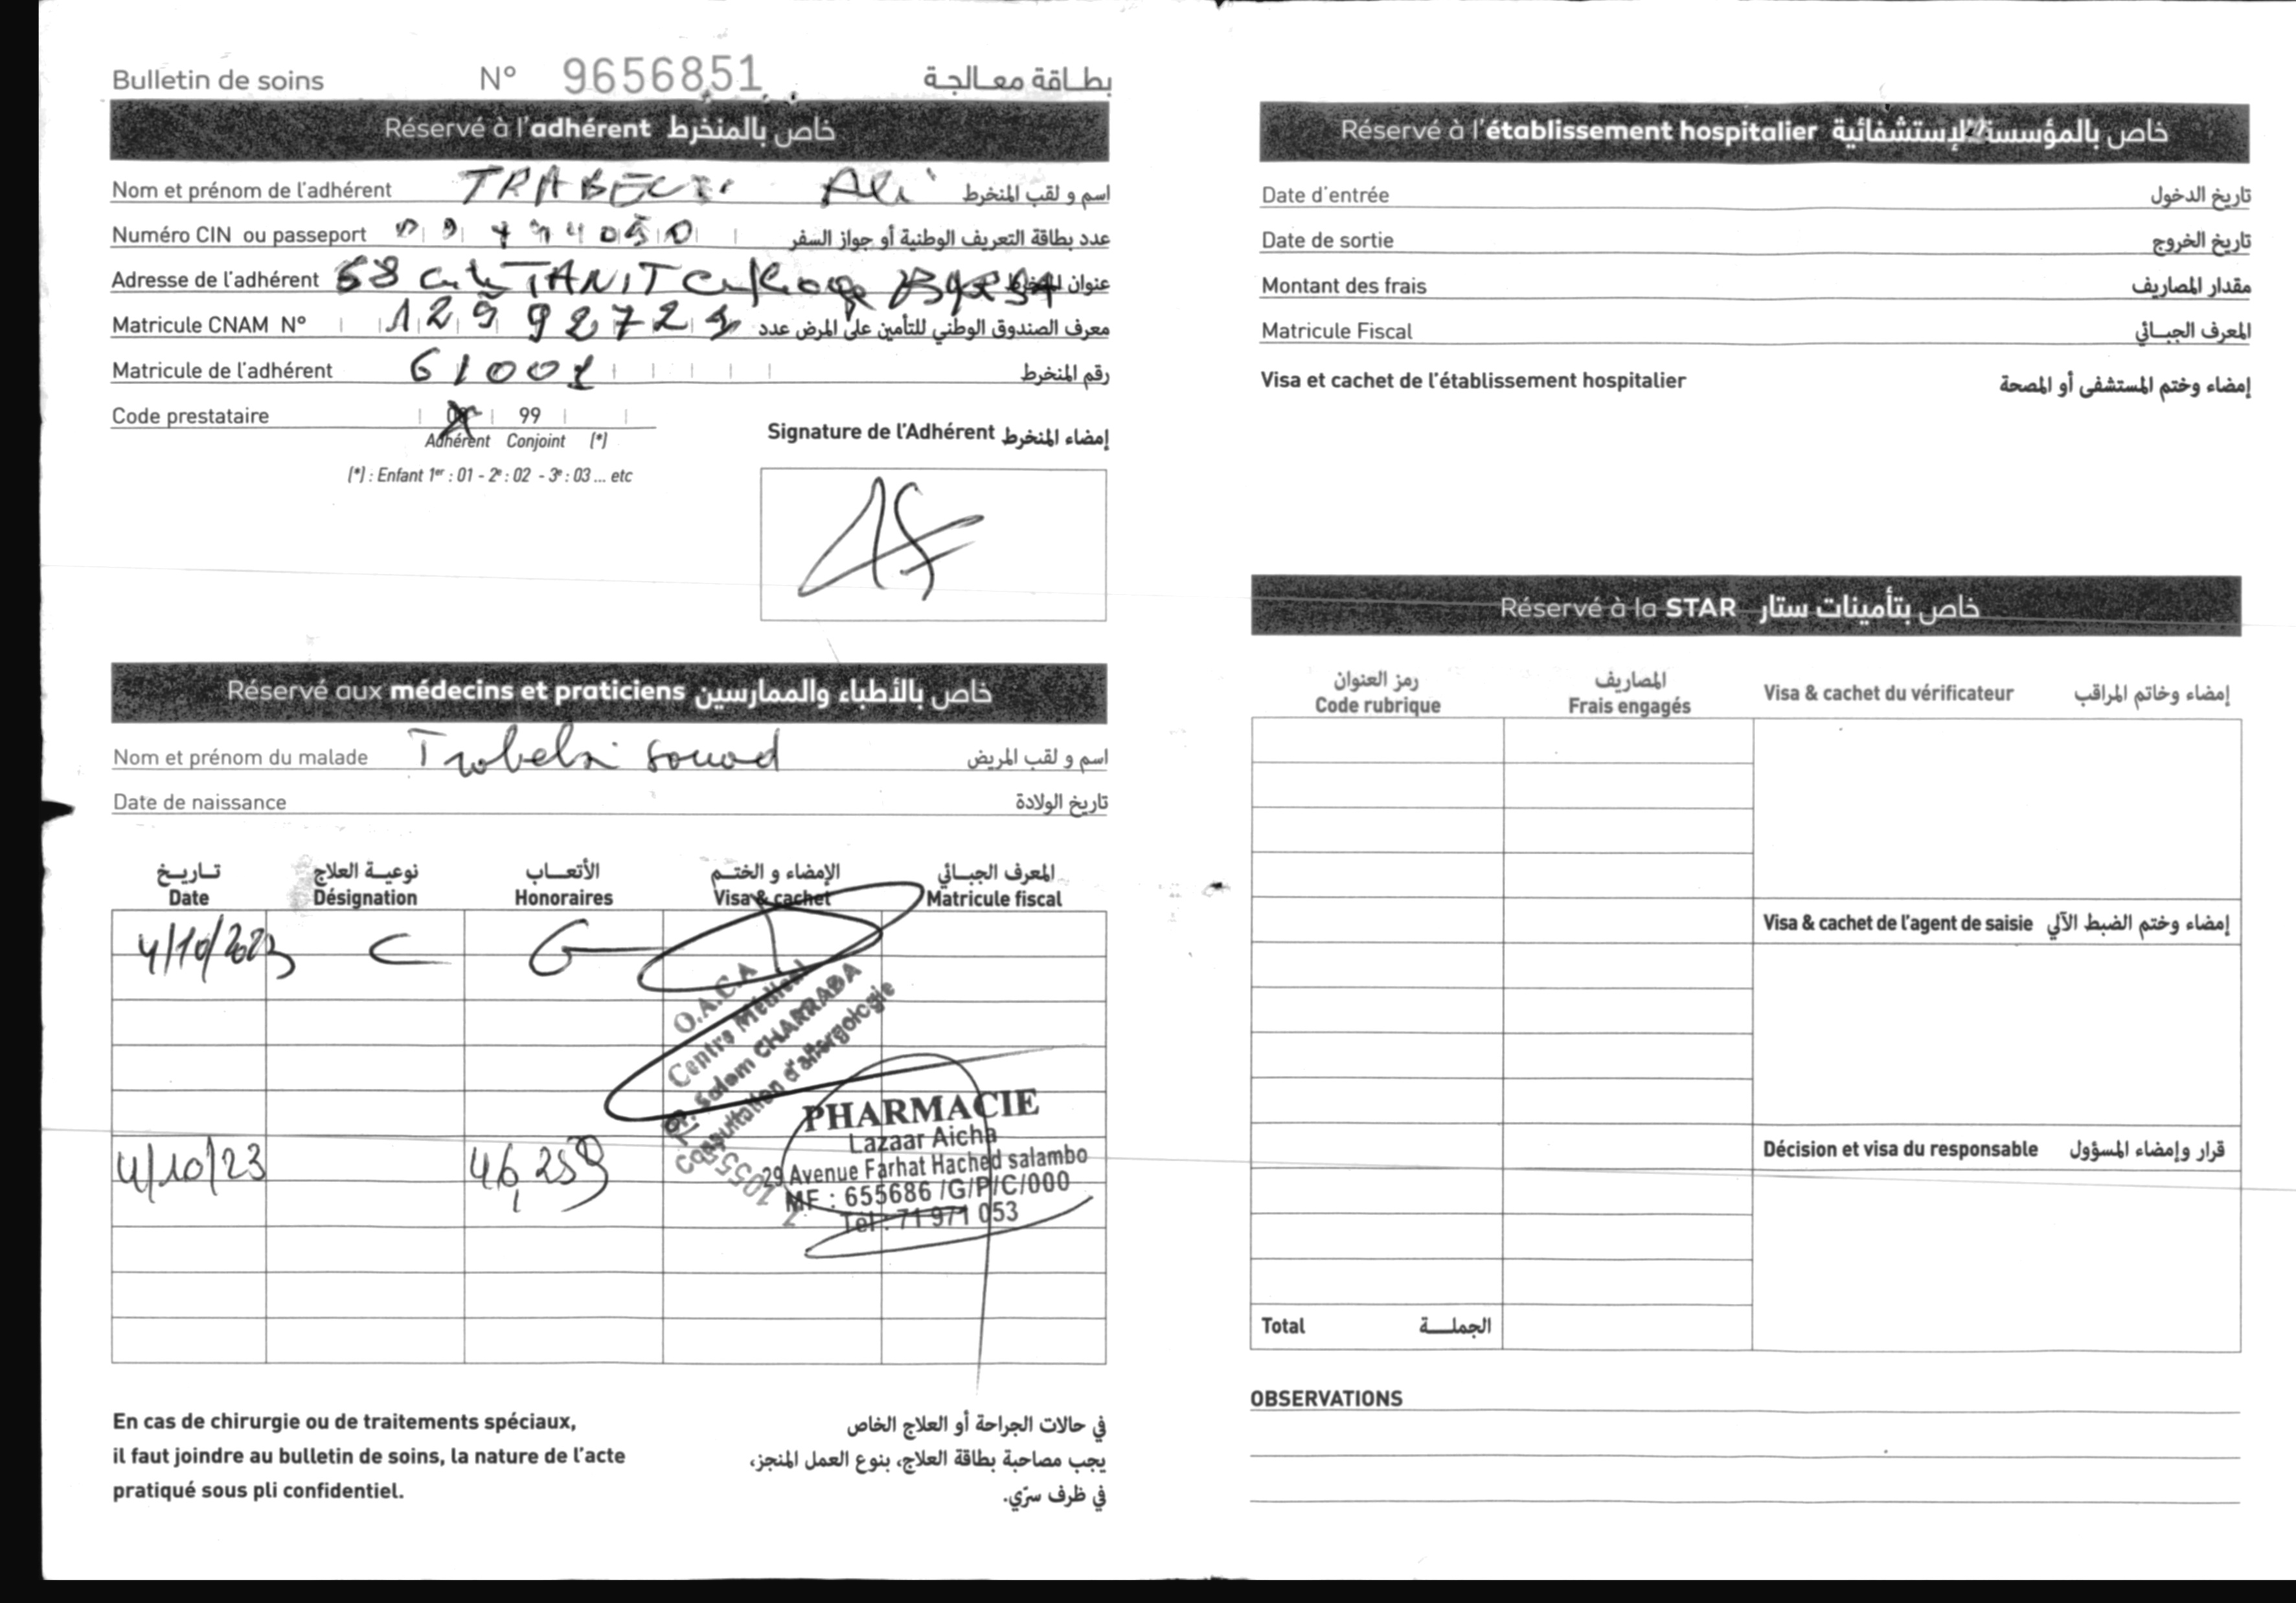 Bulletin de soins N° 9656851 بطاقة معالجة
Réservé à l'adhérent خاص بالمنخرط
Nom et prénom de l'adhérent TRABELSI Ali اسم و لقب المنخرط
Numéro CIN ou passeport عدد بطاقة التعريف الوطنية أو جواز السفر
Adresse de l'adhérent 58 TANIT عنوان المنخرط
Matricule CNAM N° معرف الصندوق الوطني للتأمين على المرض عدد
Matricule de l'adhérent 61001 رقم المنخرط
Code prestataire 99
Adhérent Conjoint (*)
(*) : Enfant 1er : 01 - 2e : 02 - 3e : 03 ... etc
Signature de l'Adhérent إمضاء المنخرط
Réservé aux médecins et praticiens خاص بالأطباء والممارسين
Nom et prénom du malade Trabelsi Souad اسم و لقب المريض
Date de naissance تاريخ الولادة
تاريخ نوعية العلاج الأتعاب الإمضاء و الختم المعرف الجبائي
Date Désignation Honoraires Visa & cachet Matricule fiscal
4/10/2023 C G
O.A.C.A
Centre Médical
Dr. Salem CHARRABA
Consultation d'allergologie
4/10/23 46,259
PHARMACIE
Lazaar Aicha
29 Avenue Farhat Hached salambo
MF : 655686 /G/P/C/000
Tél : 71 971 053
En cas de chirurgie ou de traitements spéciaux,
il faut joindre au bulletin de soins, la nature de l'acte
pratiqué sous pli confidentiel.
في حالات الجراحة أو العلاج الخاص
يجب مصاحبة بطاقة العلاج، بنوع العمل المنجز،
في ظرف سرّي.
Réservé à l'établissement hospitalier خاص بالمؤسسة الإستشفائية
Date d'entrée تاريخ الدخول
Date de sortie تاريخ الخروج
Montant des frais مقدار المصاريف
Matricule Fiscal المعرف الجبائي
Visa et cachet de l'établissement hospitalier إمضاء وختم المستشفى أو المصحة
Réservé à la STAR خاص بتأمينات ستار
رمز العنوان المصاريف
Code rubrique Frais engagés Visa & cachet du vérificateur إمضاء وخاتم المراقب
Visa & cachet de l'agent de saisie إمضاء وختم الضبط الآلي
Décision et visa du responsable قرار وإمضاء المسؤول
Total الجملة
OBSERVATIONS